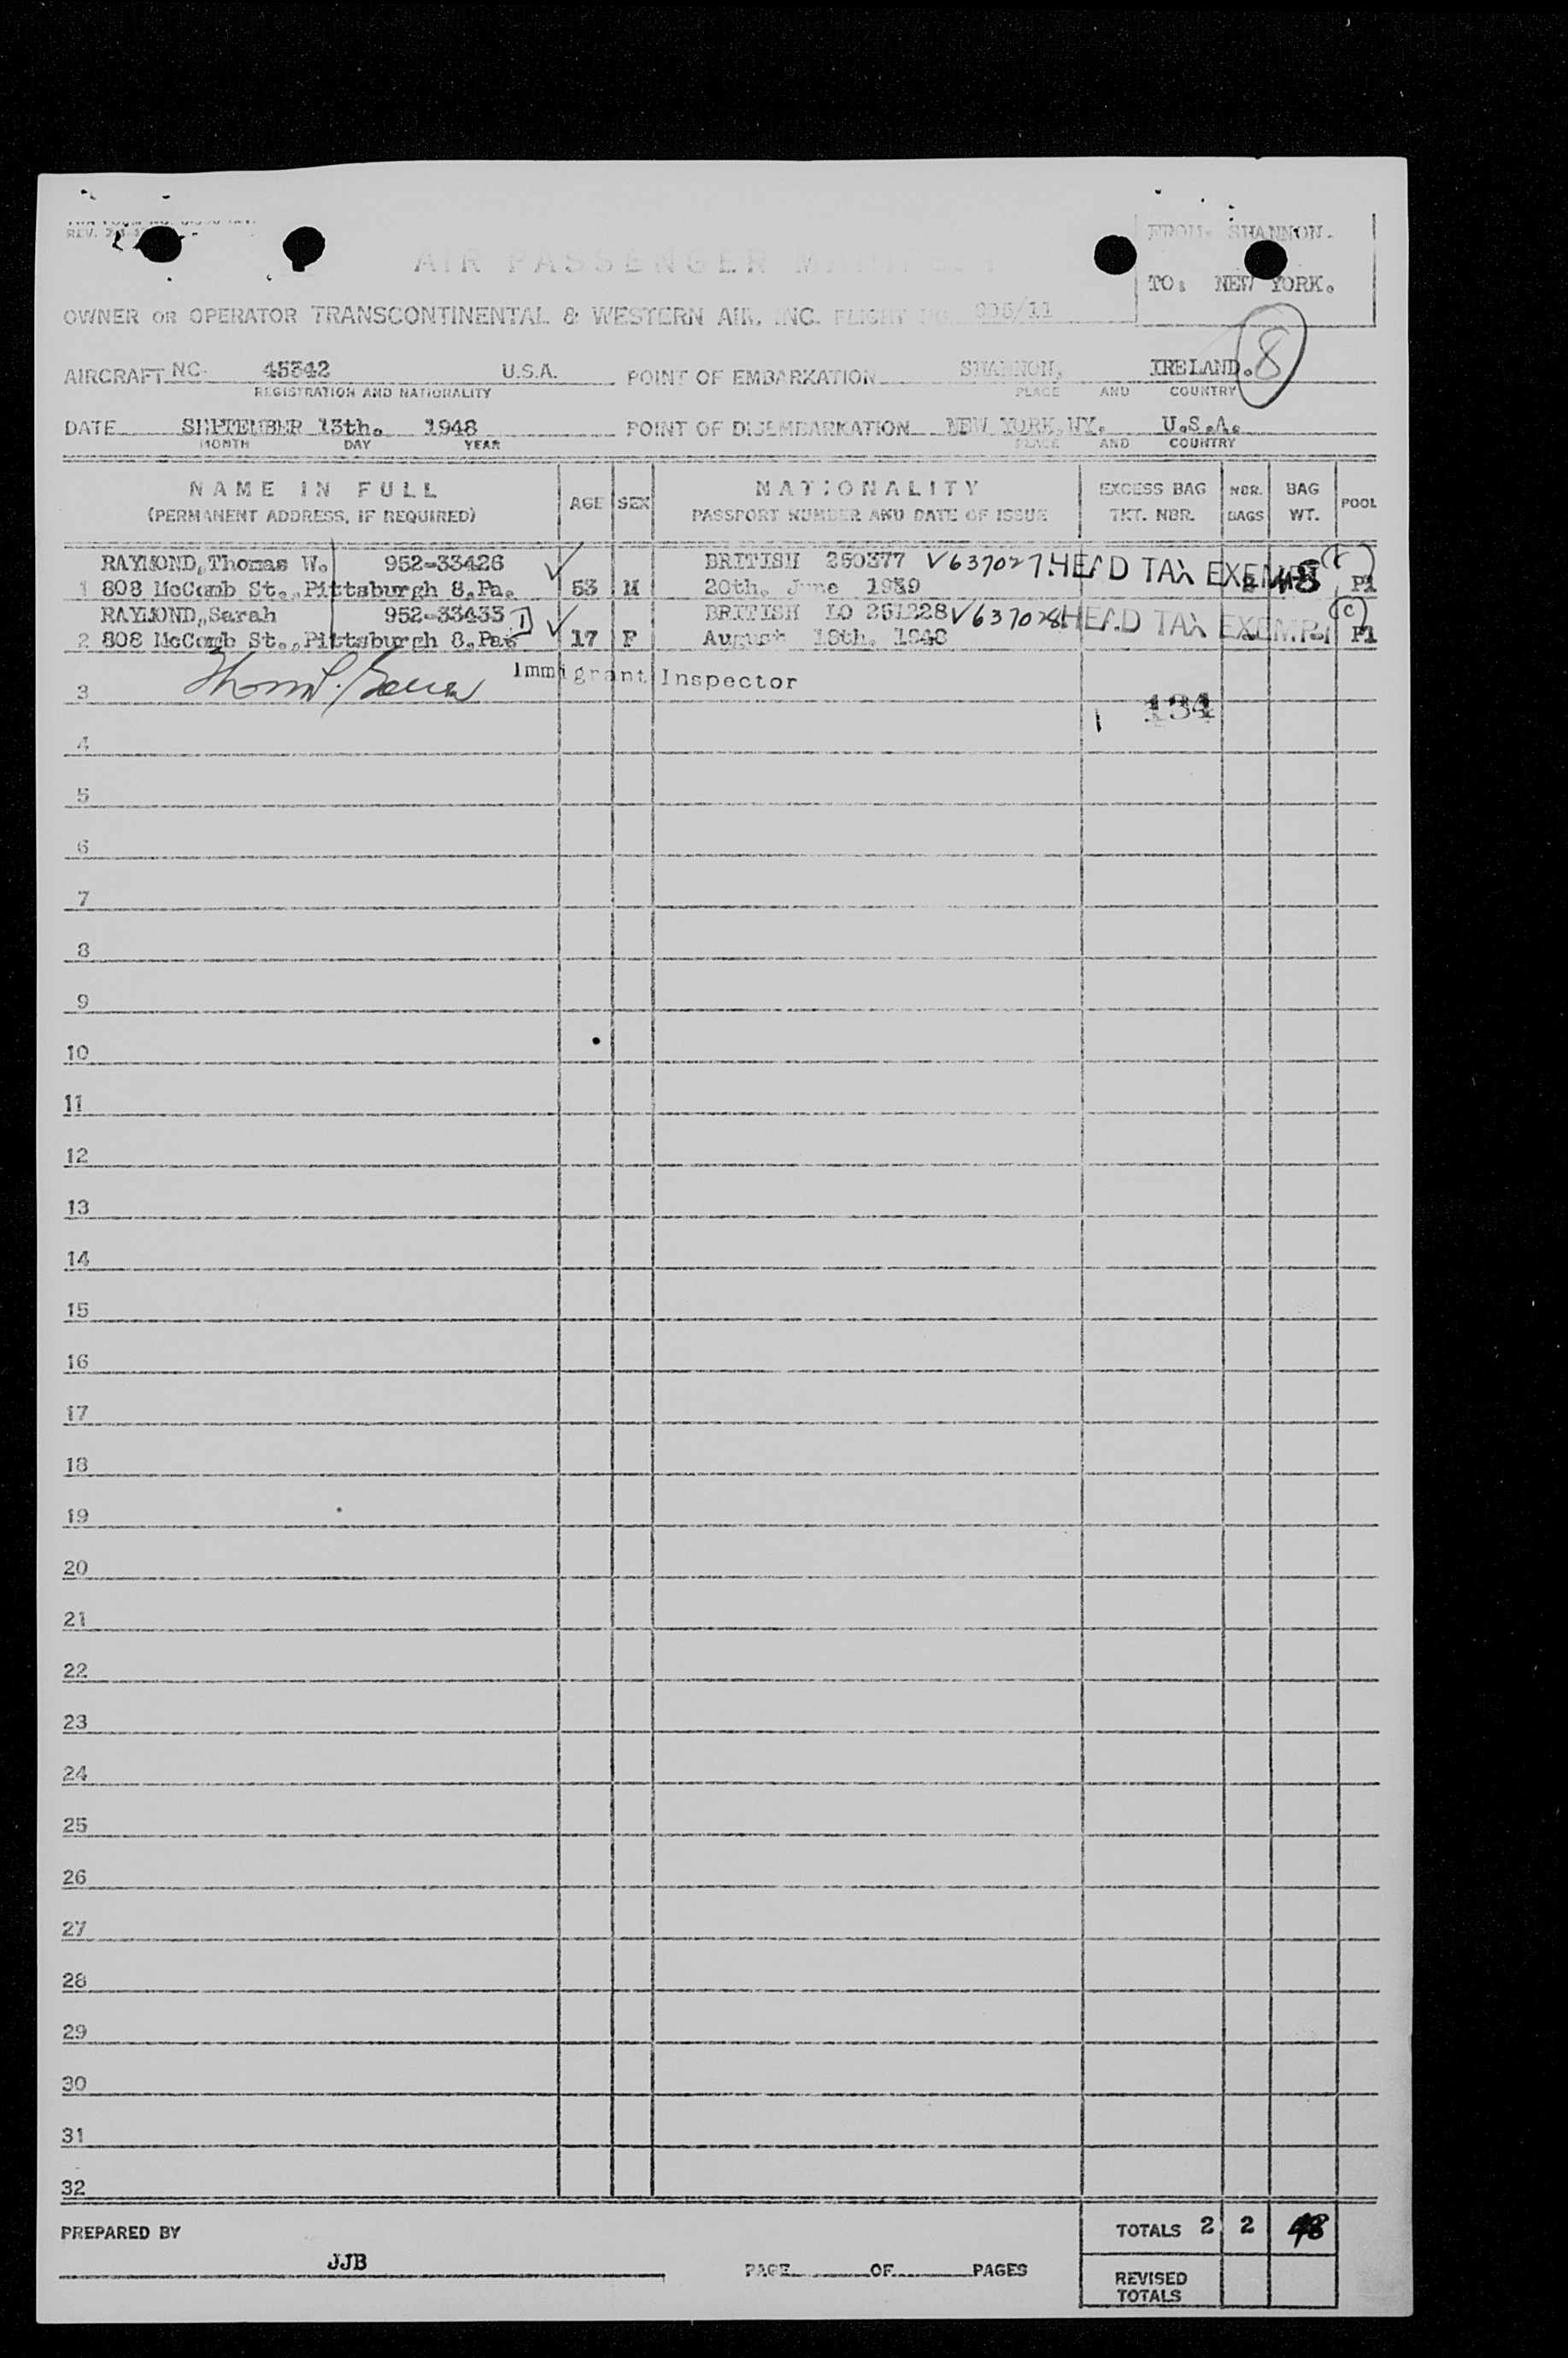 REV.
FROM: SHANNON.
AIR PASSENGER
TO: NEW YORK.
OWNER OR OPERATOR TRANSCONTINENTAL & WESTERN AIR, INC. FLIGHT NO.
8
AIRCRAFT NC. 45342 U.S.A. POINT OF EMBARKATION SHANNON, IRELAND.
REGISTRATION AND NATIONALITY PLACE AND COUNTRY
DATE SEPTEMBER 13th. 1948 POINT OF DISEMBARKATION NEW YORK, NY. U.S.A.
MONTH DAY YEAR PLACE AND COUNTRY
NAME IN FULL AGE SEX NATIONALITY EXCESS BAG NBR. BAG POOL
(PERMANENT ADDRESS, IF REQUIRED) PASSPORT NUMBER AND DATE OF ISSUE TKT. NBR. BAGS WT.
RAYMOND, Thomas W. 952-33426 BRITISH 250377 V637027 HEAD TAX EXEMPT
1 808 McComb St., Pittsburgh 8, Pa. 53 M 20th. June 1939 2 48 P1
RAYMOND, Sarah 952-33433 BRITISH LO 251228 V637028 HEAD TAX EXEMPT (C)
2 808 McComb St., Pittsburgh 8, Pa. 17 F August 18th. 1948 P1
Immigrant Inspector
3
134
4
5
6
7
8
9
10
11
12
13
14
15
16
17
18
19
20
21
22
23
24
25
26
27
28
29
30
31
32
PREPARED BY TOTALS 2 2 48
JJB PAGE OF PAGES
REVISED
TOTALS